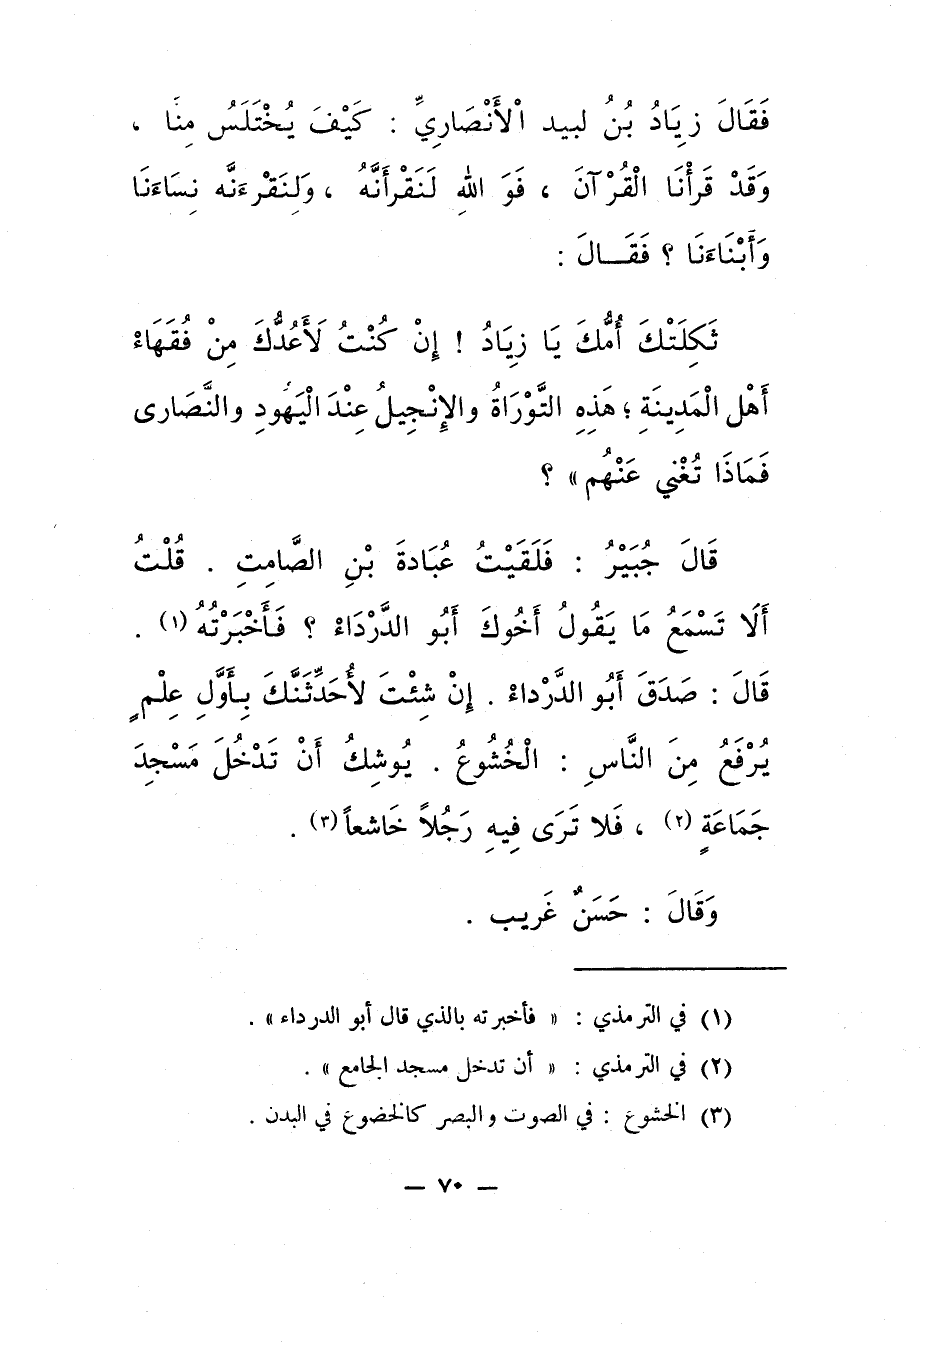 فَقَالَ زِيَادُ بْنُ لبيد الْأَنْصَارِيِّ : كَيْفَ يُخْتَلَسُ مِنَّا ،
وَقَدْ قَرَأْنَا الْقُرْآنَ ، فَوَ اللهِ لَنَقْرَأَنَّهُ ، وَلنَقْرِءَنَّه نِسَاءَنَا
وَأَبْنَاءَنَا ؟ فَقَـــالَ :
ثَكِلَتْكَ أُمُّكَ يَا زِيَادُ ! إِنْ كُنْتُ لَأَعُدُّكَ مِنْ فُقَهَاءْ
أَهْلِ الْمَدِينَةِ ؛ هَذِهِ التَّوْرَاةُ والإِنْجِيلُ عِنْدَ الْيَهُودِ والنَّصَارى
فَمَاذَا تُغْنِي عَنْهُم » ؟
قَالَ جُبَيْرُ : فَلَقَيْتُ عُبَادةَ بْنِ الصَّامِتِ . قُلْتُ
أَلَا تَسْمَعُ مَا يَقُولُ أَخُوكَ أَبُو الدَّرْدَاءْ ؟ فَأَخْبَرْتُهُ (١) .
قَالَ : صَدَقَ أَبُو الدَّرْداءْ . إِنْ شِئْتَ لأُحَدِّثَنَّكَ بِأَوَّلِ عِلْمٍ
يُرْفَعُ مِنَ النَّاسِ : الْخُشُوعُ . يُوشِكُ أَنْ تَدْخُلَ مَسْجِدَ
جَمَاعَةٍ (٢) ، فَلا تَرَى فِيهِ رَجُلاً خَاشعاً (٣) .
وَقَالَ : حَسَنٌ غَريب .
(١) في الترمذي : « فأخبرته بالذي قال أبو الدرداء » .
(٢) في الترمذي : « أن تدخل مسجد الجامع » .
(٣) الخشوع : في الصوت والبصر كالخضوع في البدن .
— ٧٠ —